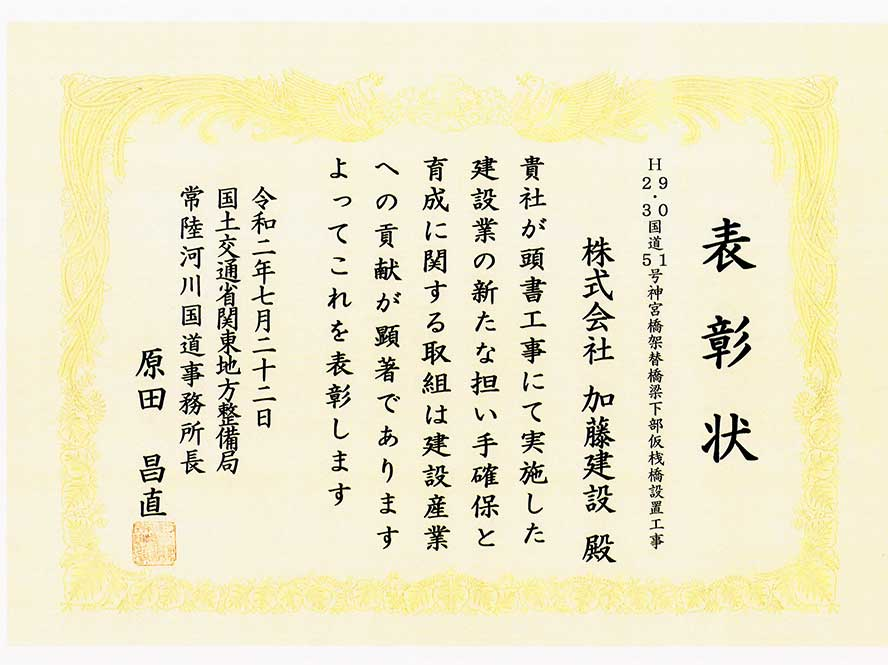 表彰状
H29・30国道51号神宮橋架替橋梁下部仮桟橋設置工事
株式会社 加藤建設 殿
貴社が頭書工事にて実施した
建設業の新たな担い手確保と
育成に関する取組は建設産業
への貢献が顕著であります
よってこれを表彰します
令和二年七月二十二日
国土交通省関東地方整備局
常陸河川国道事務所長
原田 昌直